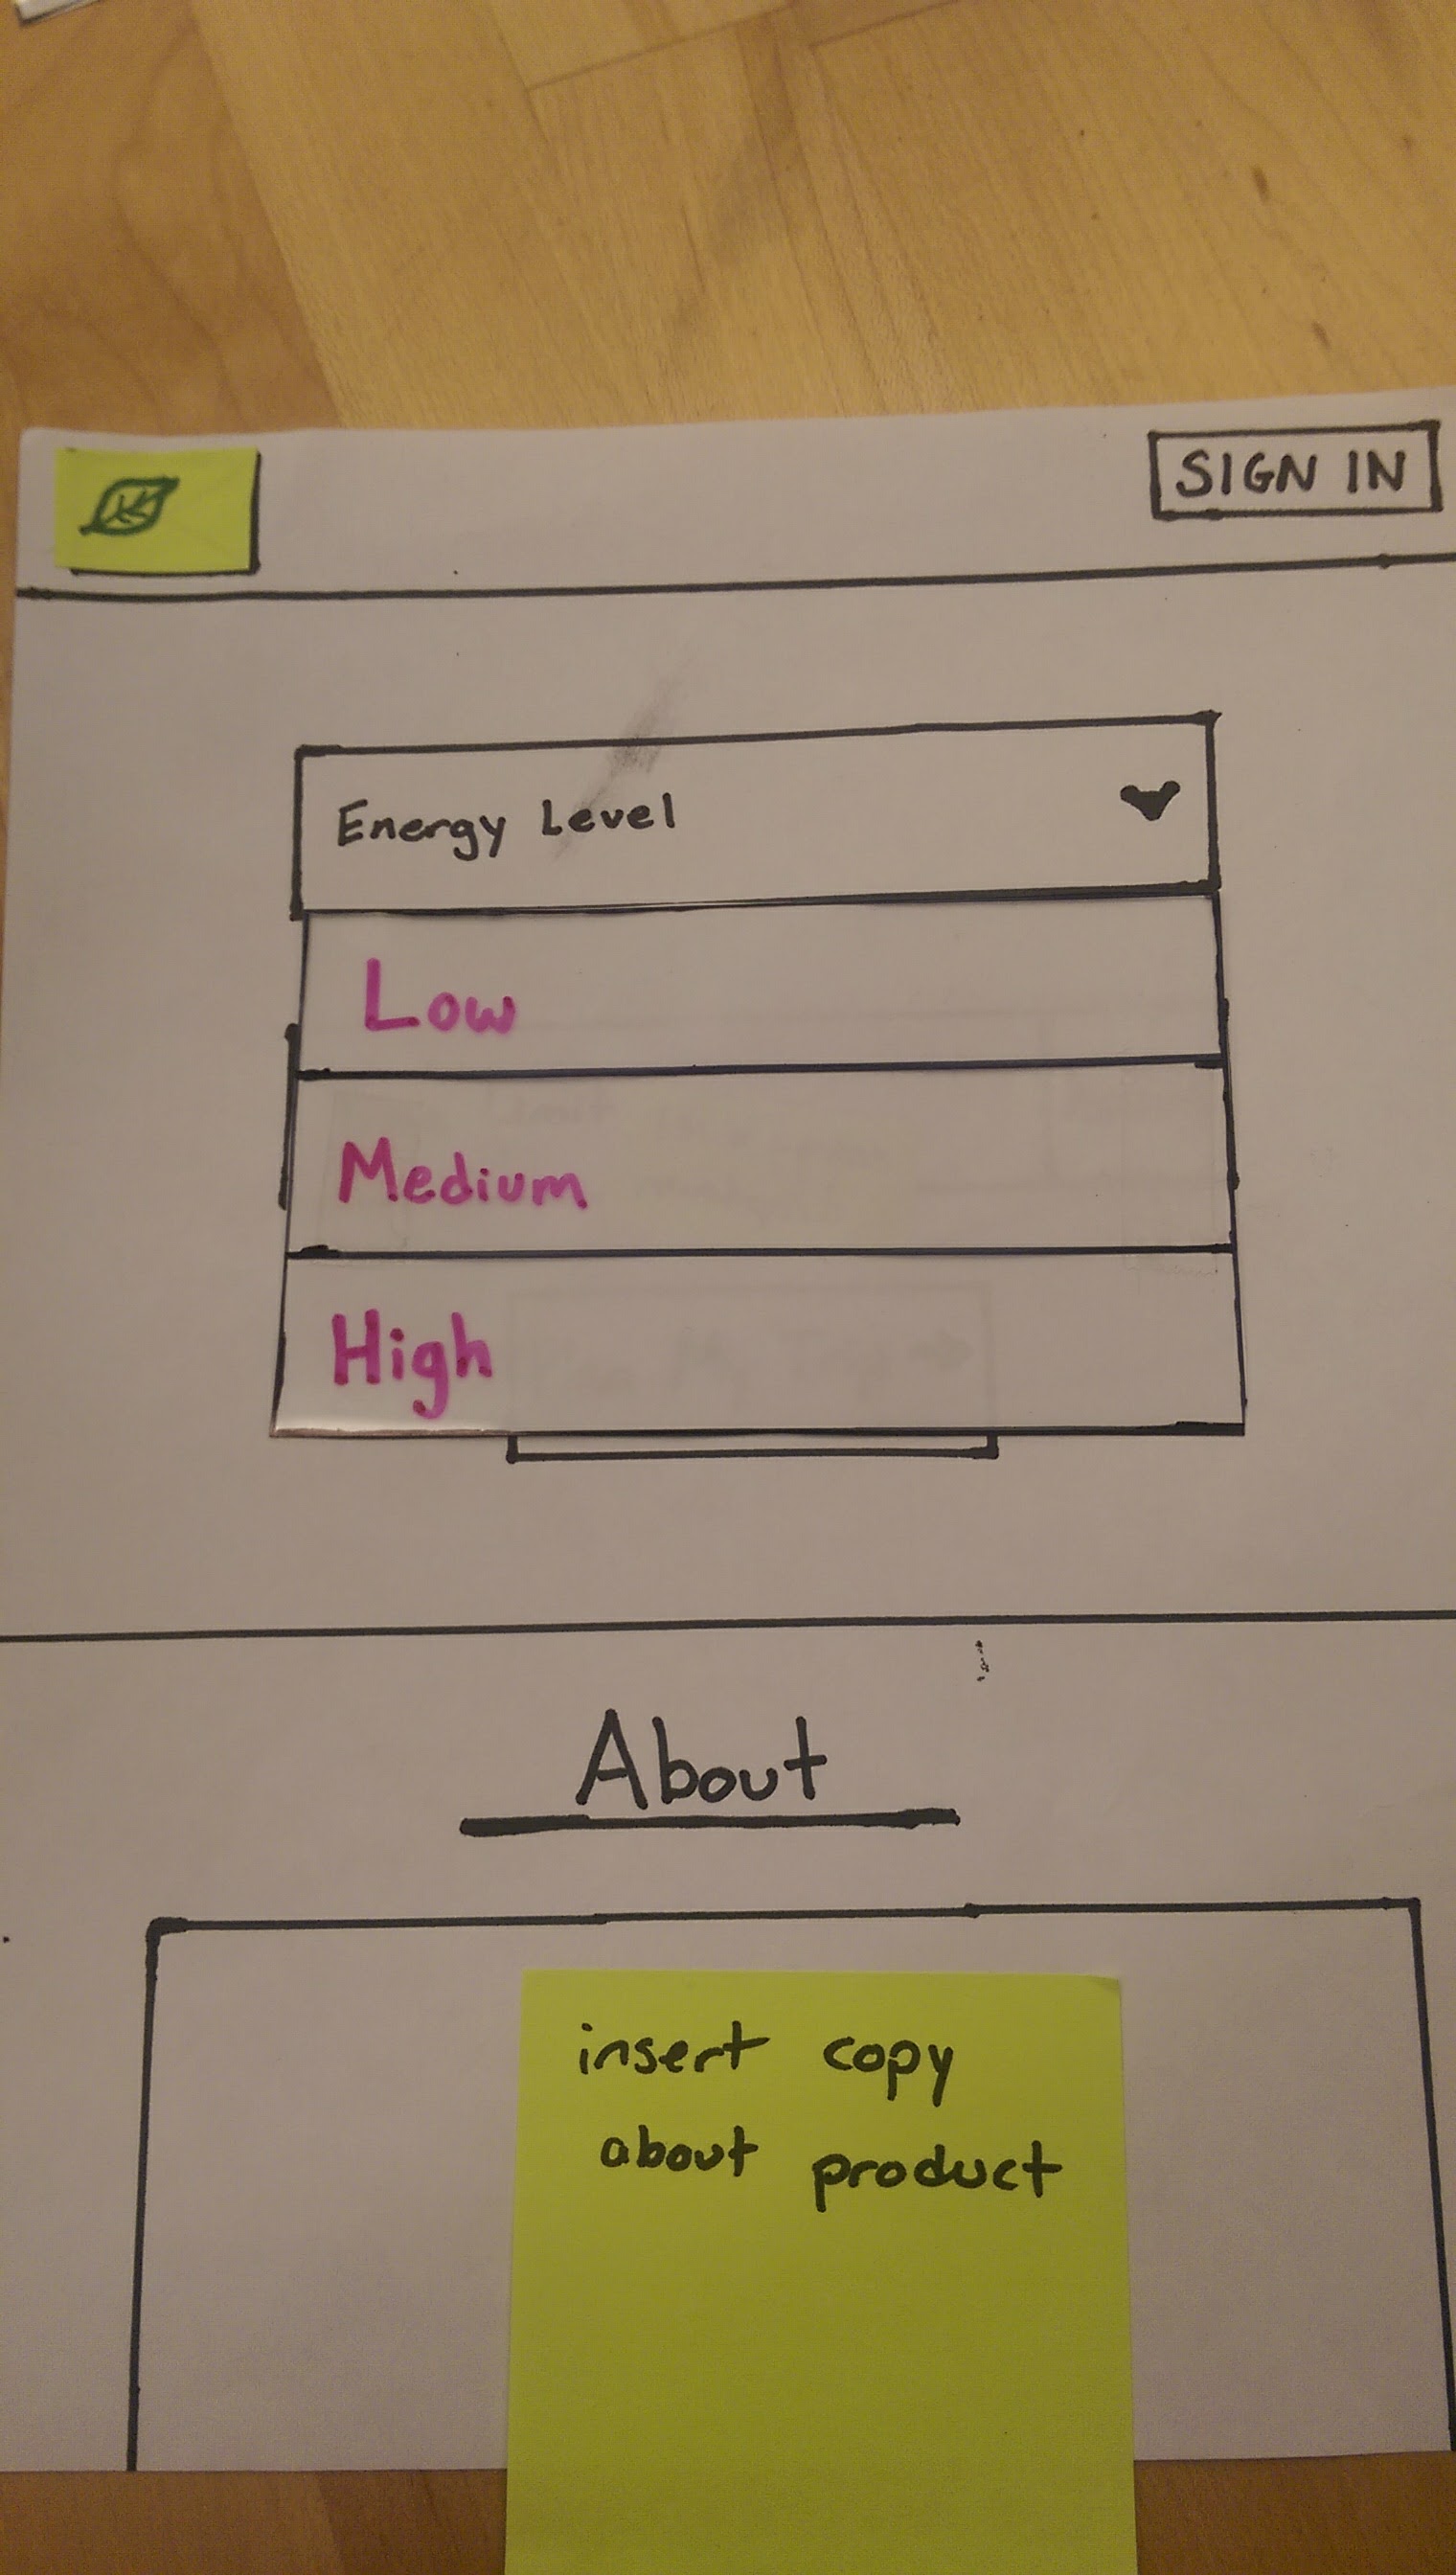 SIGN IN
Energy Level
Low
Medium
High
About
insert copy
about product